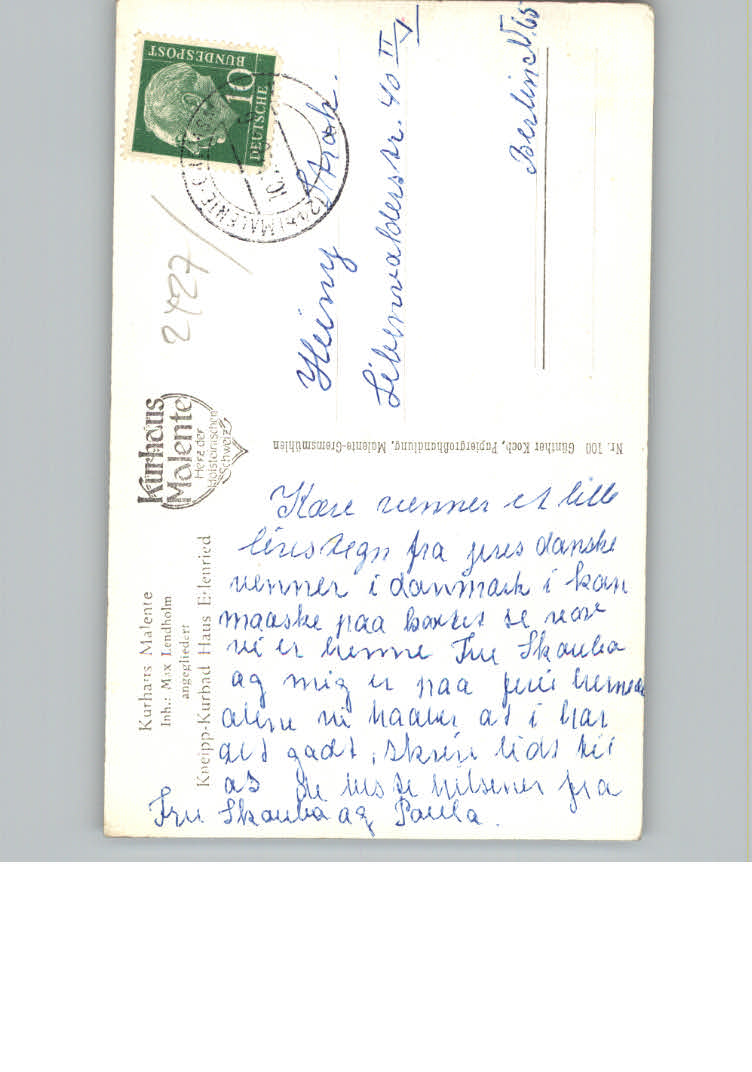 Kurhaus Malente
Inh.: Max Lendholm
angegliedert
Kneipp-Kurbad Haus Erlenried
Kurhaus
Malente
Herz der
Holsteinischen
Schweiz
Nr. 100 Günther Koch, Papiergroßhandlung, Malente-Gremsmühlen
DEUTSCHE
BUNDESPOST
10
MALENTE-G
2427
Heinz
Liebenwalderstr. 40 II
Berlin N. 65
Kære venner et lille
livstegn fra jeres danske
venner i danmark i kan
maaske paa kortet se vor
vi er henne Fru Skouba
og mig er paa ferie
alene vi haaber at i har
det godt, skriv lidt til
os de beste hilsener fra
Fru Skouba og Paula.